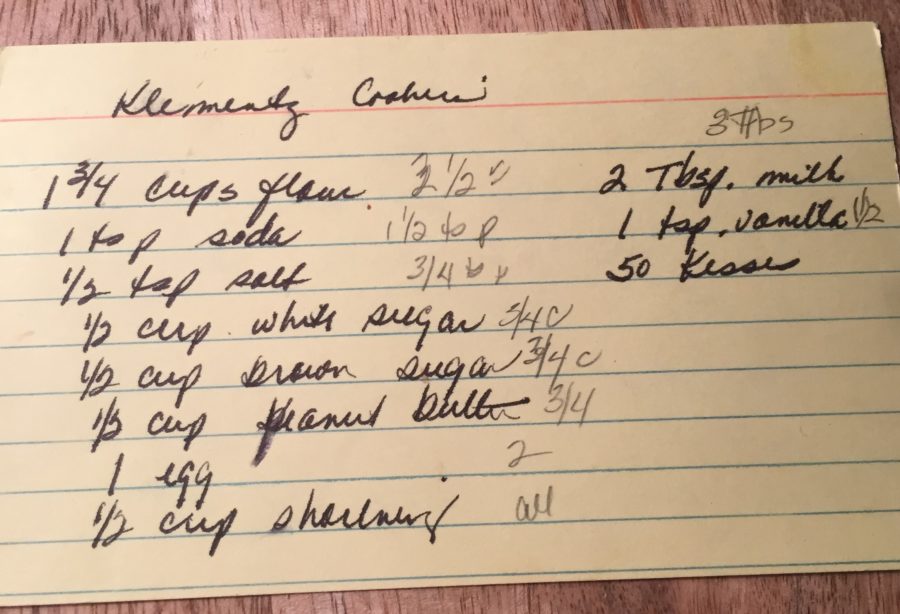 Klementz Cookies
1 3/4 cups flour 2 1/2
1 tsp soda 1 1/2 tsp
1/2 tsp salt 3/4
1/2 cup white sugar 3/4 c
1/2 cup brown sugar 3/4 c
1/2 cup peanut butter 3/4
1 egg 2
1/2 cup shortening all
3 Tbs
2 Tbsp. milk
1 tsp. vanilla 1 1/2
50 Kisses